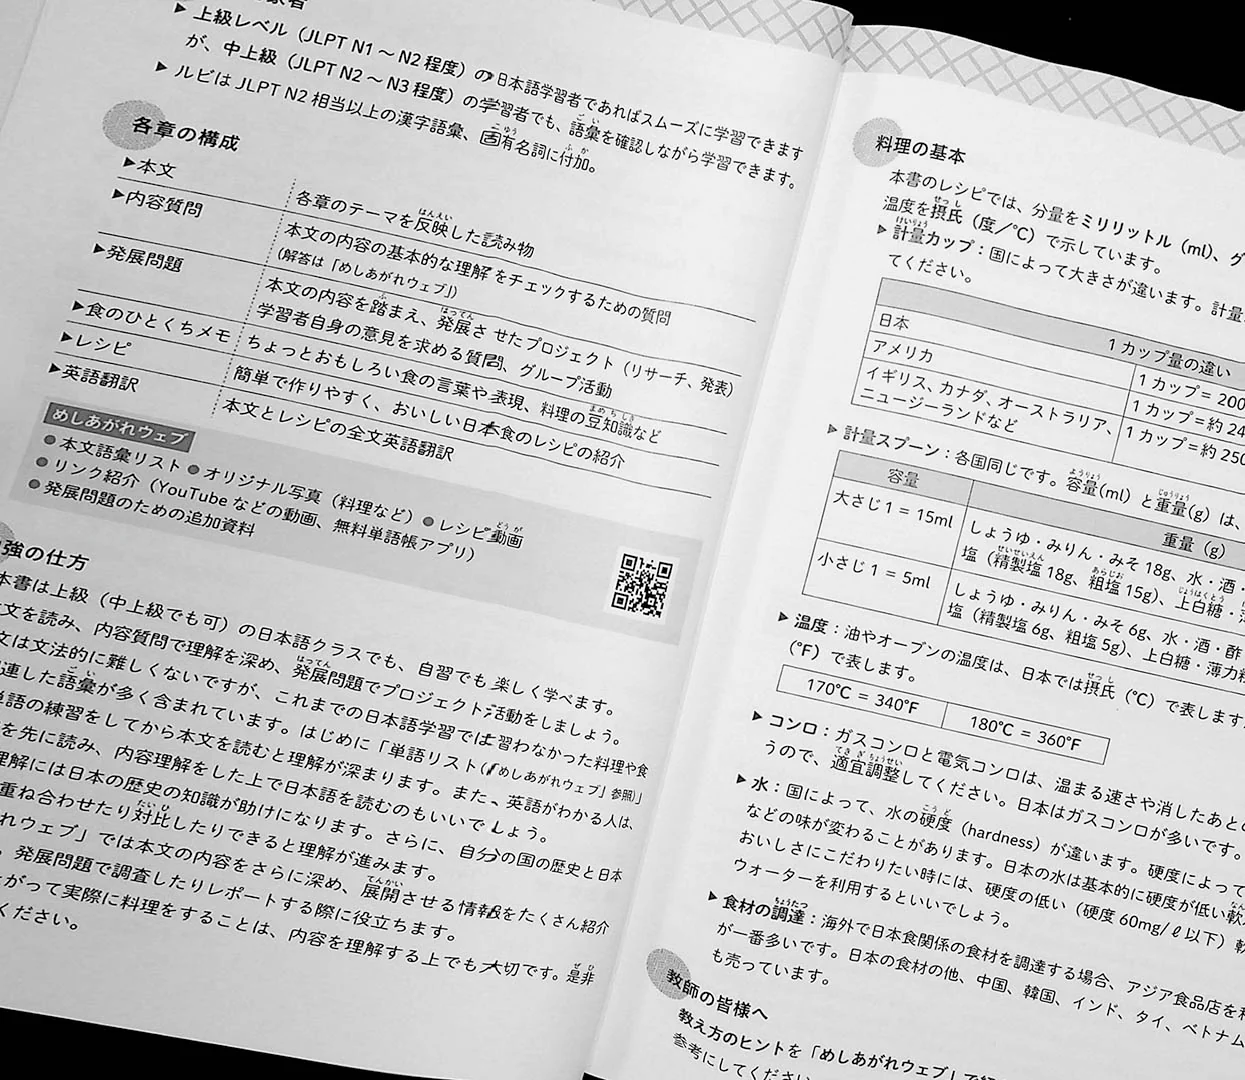 ▶上級レベル（JLPT N1～N2程度）の日本語学習者であればスムーズに学習できます
が、中上級（JLPT N2～N3程度）の学習者でも、語彙を確認しながら学習できます。
▶ルビはJLPT N2相当以上の漢字語彙、固有名詞に付加。
各章の構成
▶本文
各章のテーマを反映した読み物
▶内容質問
本文の内容の基本的な理解をチェックするための質問
（解答は「めしあがれウェブ」）
▶発展問題
本文の内容を踏まえ、発展させたプロジェクト（リサーチ、発表）
学習者自身の意見を求める質問、グループ活動
▶食のひとくちメモ
ちょっとおもしろい食の言葉や表現、料理の豆知識など
▶レシピ
簡単で作りやすく、おいしい日本食のレシピの紹介
▶英語翻訳
本文とレシピの全文英語翻訳
めしあがれウェブ
●本文語彙リスト ●オリジナル写真（料理など） ●レシピ動画
●リンク紹介（YouTubeなどの動画、無料単語帳アプリ）
●発展問題のための追加資料
強の仕方
本書は上級（中上級でも可）の日本語クラスでも、自習でも楽しく学べます。
文を読み、内容質問で理解を深め、発展問題でプロジェクト活動をしましょう。
文は文法的に難しくないですが、これまでの日本語学習では習わなかった料理や食
連した語彙が多く含まれています。はじめに「単語リスト（「めしあがれウェブ」参照）」
単語の練習をしてから本文を読むと理解が深まります。また、英語がわかる人は、
を先に読み、内容理解をした上で日本語を読むのもいいでしょう。
理解には日本の歴史の知識が助けになります。さらに、自分の国の歴史と日本
重ね合わせたり対比したりできると理解が進みます。
れウェブ」では本文の内容をさらに深め、展開させる情報をたくさん紹介
。発展問題で調査したりレポートする際に役立ちます。
がって実際に料理をすることは、内容を理解する上でも大切です。是非
ください。
料理の基本
本書のレシピでは、分量をミリリットル（ml）、グ
温度を摂氏（度／℃）で示しています。
▶計量カップ：国によって大きさが違います。計量
てください。
1カップ量の違い
日本
1カップ＝200
アメリカ
1カップ＝約24
イギリス、カナダ、オーストラリア、
ニュージーランドなど
1カップ＝約250
▶計量スプーン：各国同じです。容量(ml)と重量(g)は、
容量
重量（g）
大さじ1 = 15ml
しょうゆ・みりん・みそ18g、水・酒・
塩（精製塩18g、粗塩15g）、上白糖・薄
小さじ1 = 5ml
しょうゆ・みりん・みそ6g、水・酒・酢
塩（精製塩6g、粗塩5g）、上白糖・薄力粉
▶温度：油やオーブンの温度は、日本では摂氏（℃）で表します
（°F）で表します。
170℃ = 340°F
180℃ = 360°F
▶コンロ：ガスコンロと電気コンロは、温まる速さや消したあとの
うので、適宜調整してください。日本はガスコンロが多いです。
▶水：国によって、水の硬度（hardness）が違います。硬度によって
などの味が変わることがあります。日本の水は基本的に硬度が低い軟
おいしさにこだわりたい時には、硬度の低い（硬度60mg/ℓ以下）軟
ウォーターを利用するといいでしょう。
▶食材の調達：海外で日本食関係の食材を調達する場合、アジア食品店を利
が一番多いです。日本の食材の他、中国、韓国、インド、タイ、ベトナム
も売っています。
教師の皆様へ
教え方のヒントを「めしあがれウェブ」で
参考にしてください